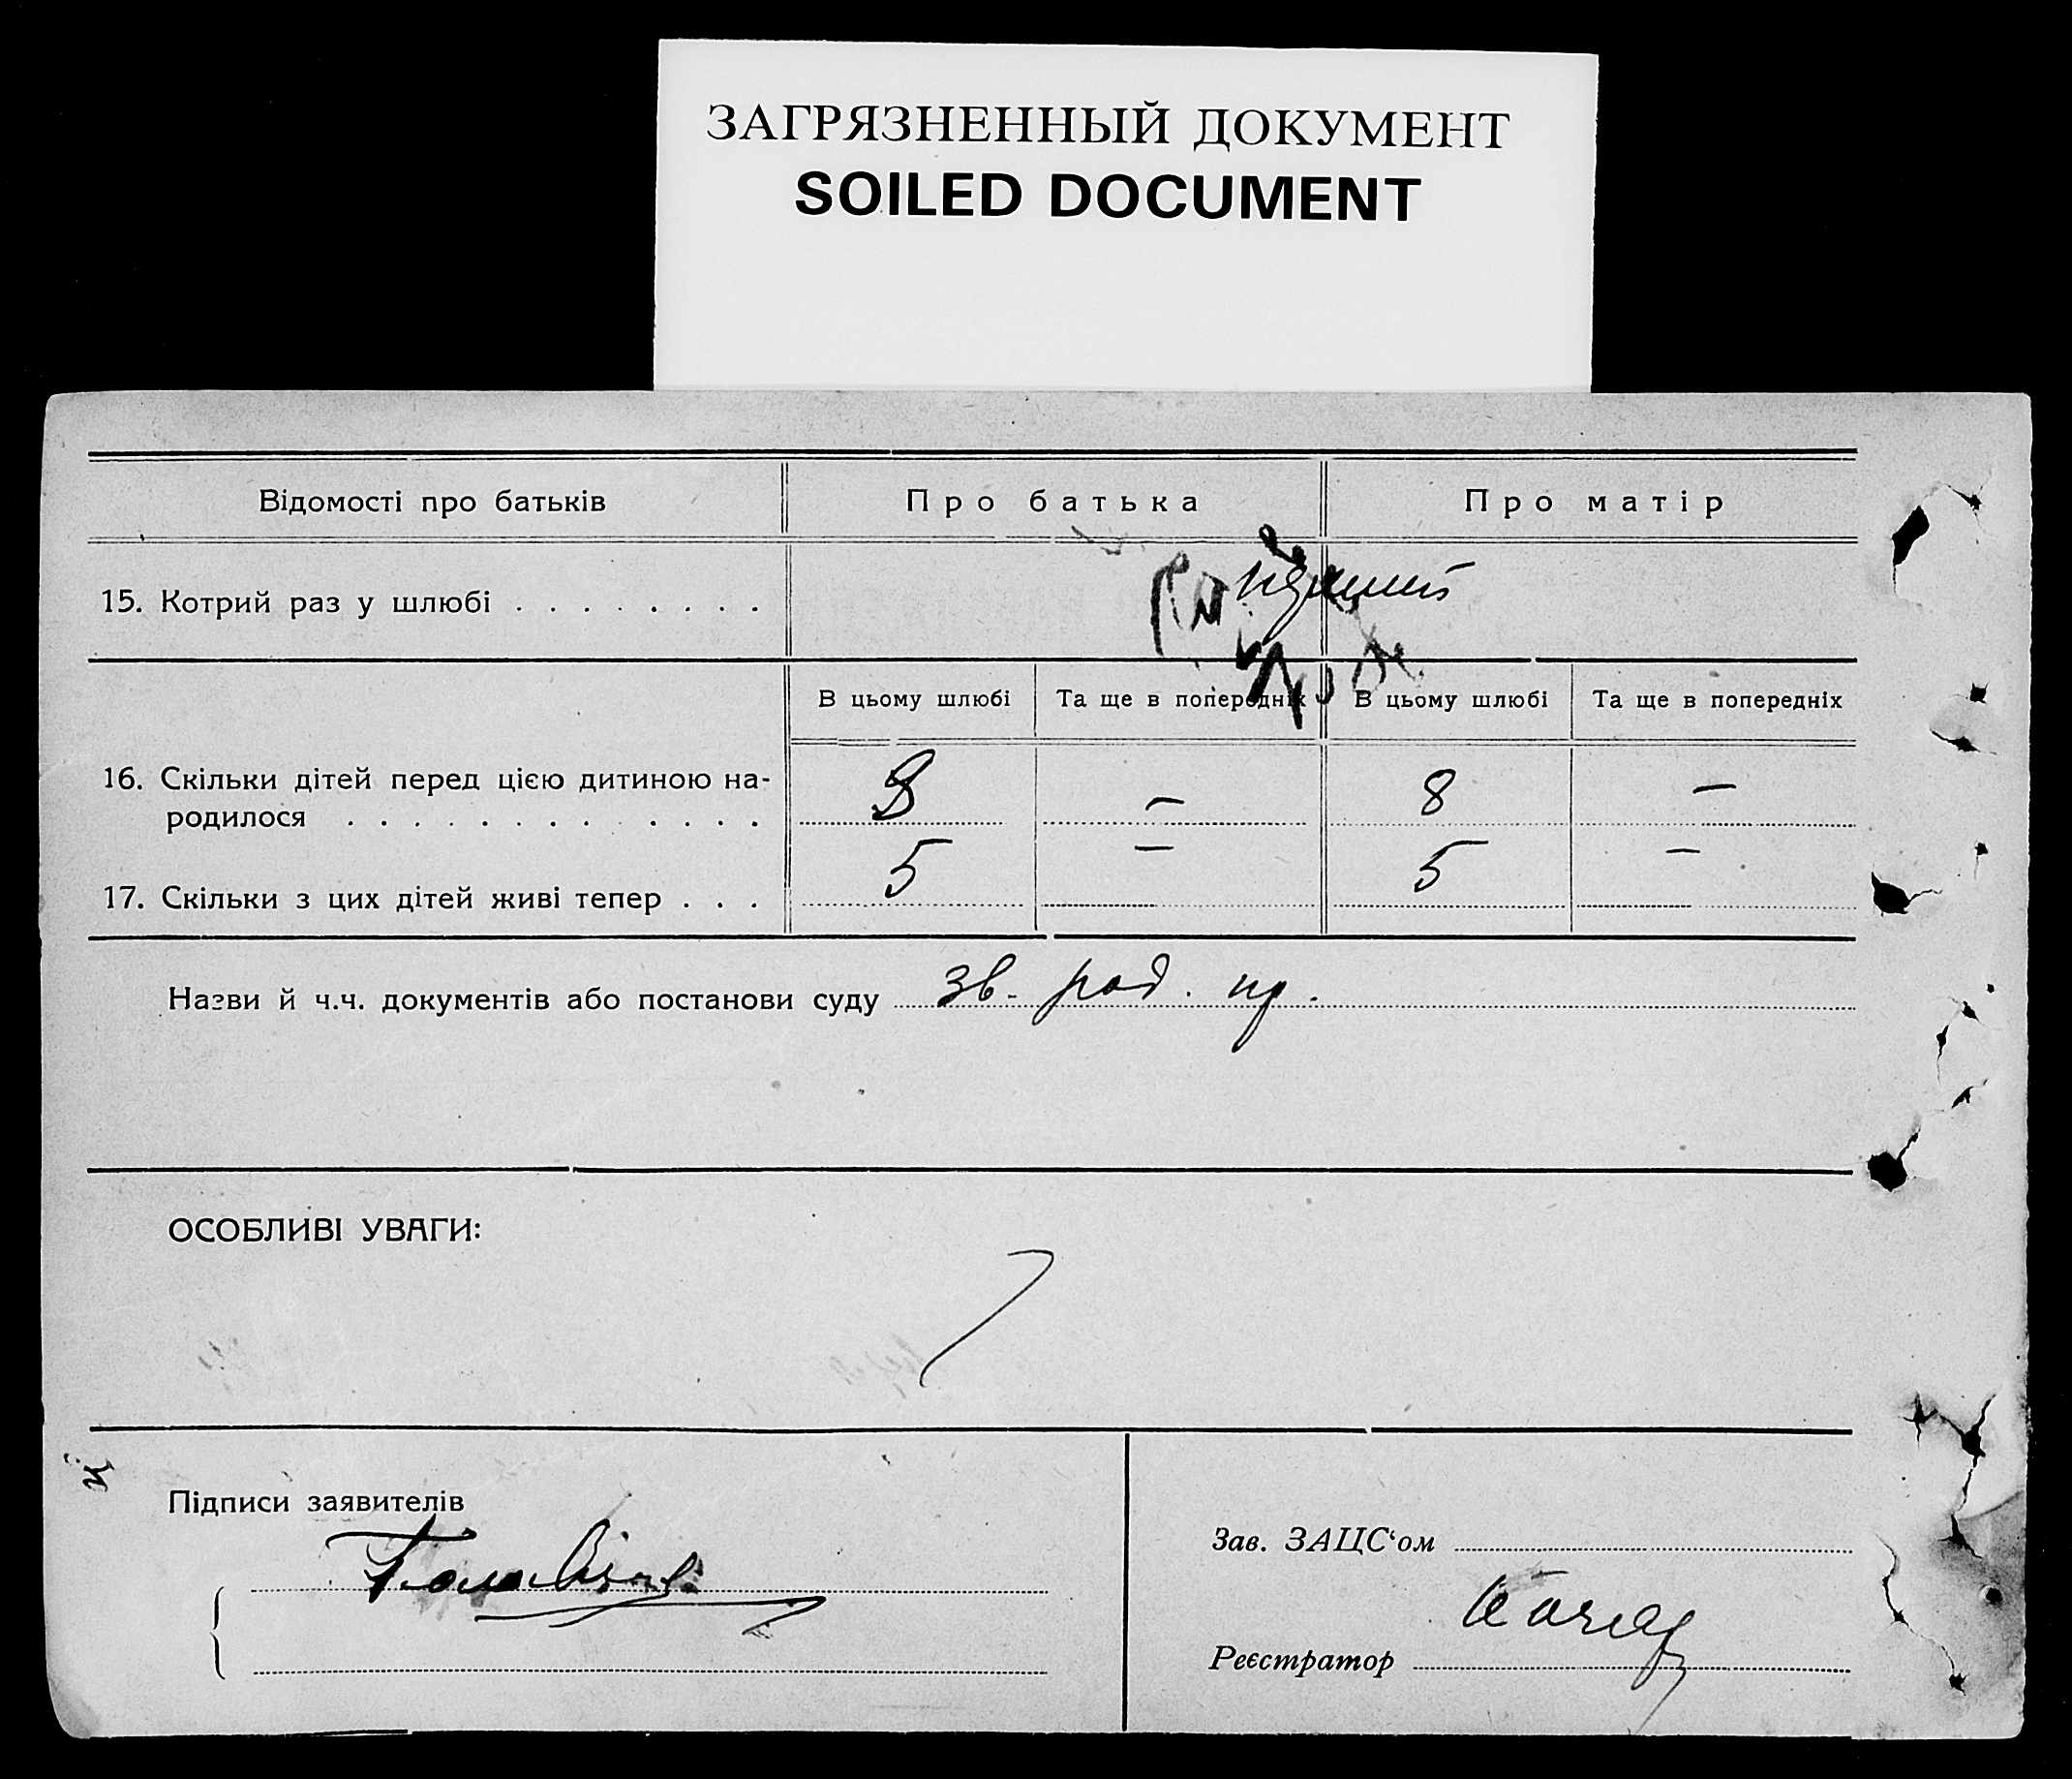 ЗАГРЯЗНЕННЫЙ ДОКУМЕНТ
SOILED DOCUMENT
Відомості про батьків Про батька Про матір
15. Котрий раз у шлюбі . . . . . . . .
В цьому шлюбі Та ще в попередніх В цьому шлюбі Та ще в попередніх
16. Скільки дітей перед цією дитиною на-
родилося . . . . . . . . . . . . . 8 — 8 —
17. Скільки з цих дітей живі тепер . . . 5 — 5 —
Назви й ч.ч. документів або постанови суду зв. род. пр.
ОСОБЛИВІ УВАГИ:
Підписи заявителів
Зав. ЗАЦС‘ом
Реєстратор